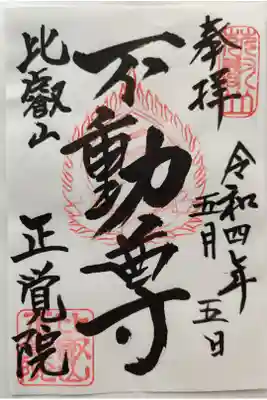 奉拝
令和四年
五月五日
不動尊
比叡山
正覚院